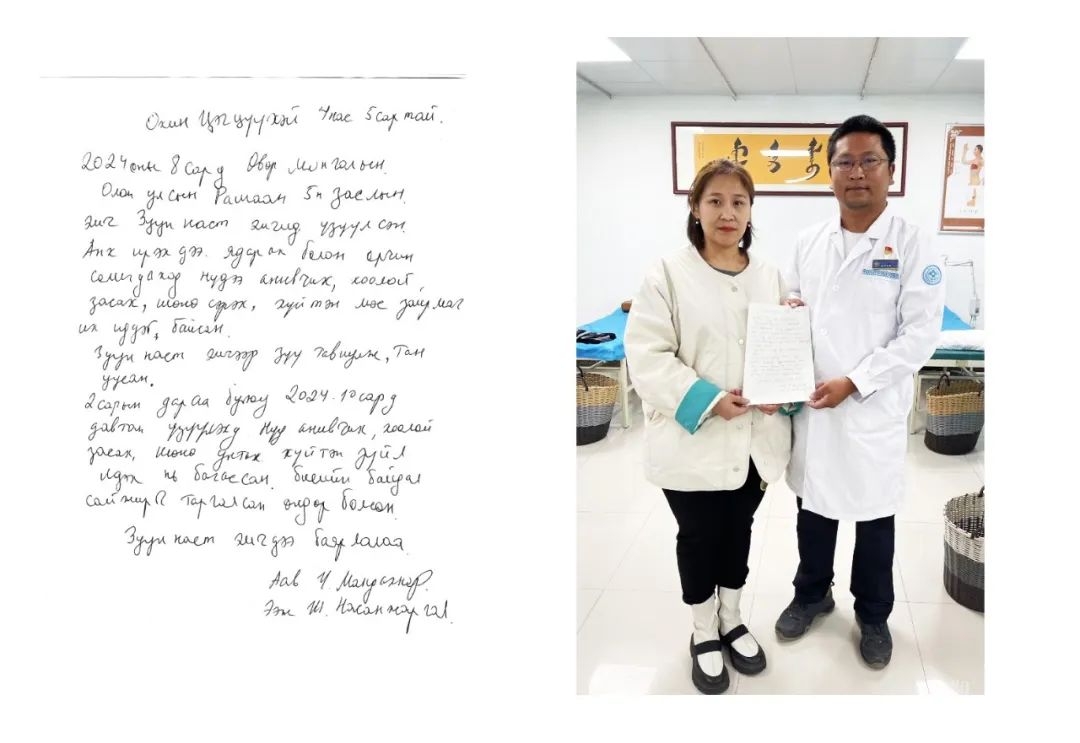 Охин Цэгцүүхэй 4 нас 5 сартай.
2024 оны 8 сард Өвөр Монголын
Олон улсын Рашаан 5н заслын
эмч Зуун наст эмчид үзүүлсэн
Анх ирэхдээ. ядарах болон орчин
солигдоход нүдээ анивчих, хоолой
засах, шөнө сэрэх, хүйтэн мөс зайрмаг
их иддэг байсан.
Зуун наст эмчээр зүү тавиулж, тан
уусан.
2 сарын дараа буюу 2024-10 сард
давтан үзүүлэхэд нүд анивчих, хоолой
засах, шөнө хүйтэн зүйл
идэх нь багассан. биеийн байдал
сайжирч таргалсан өндөр болсон.
Зуун наст эмчдээ баярлалаа
Аав Ч.
Ээж Ш. Насанжаргал.